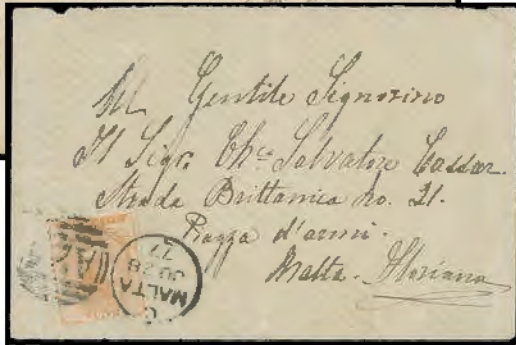 Al Gentile Signorino
Il Sigr. Chco Salvatore Cassar.
Strada Brittanica No. 21.
Piazza d'armi.
Malta. Floriana
MALTA
JU 28
77
A25